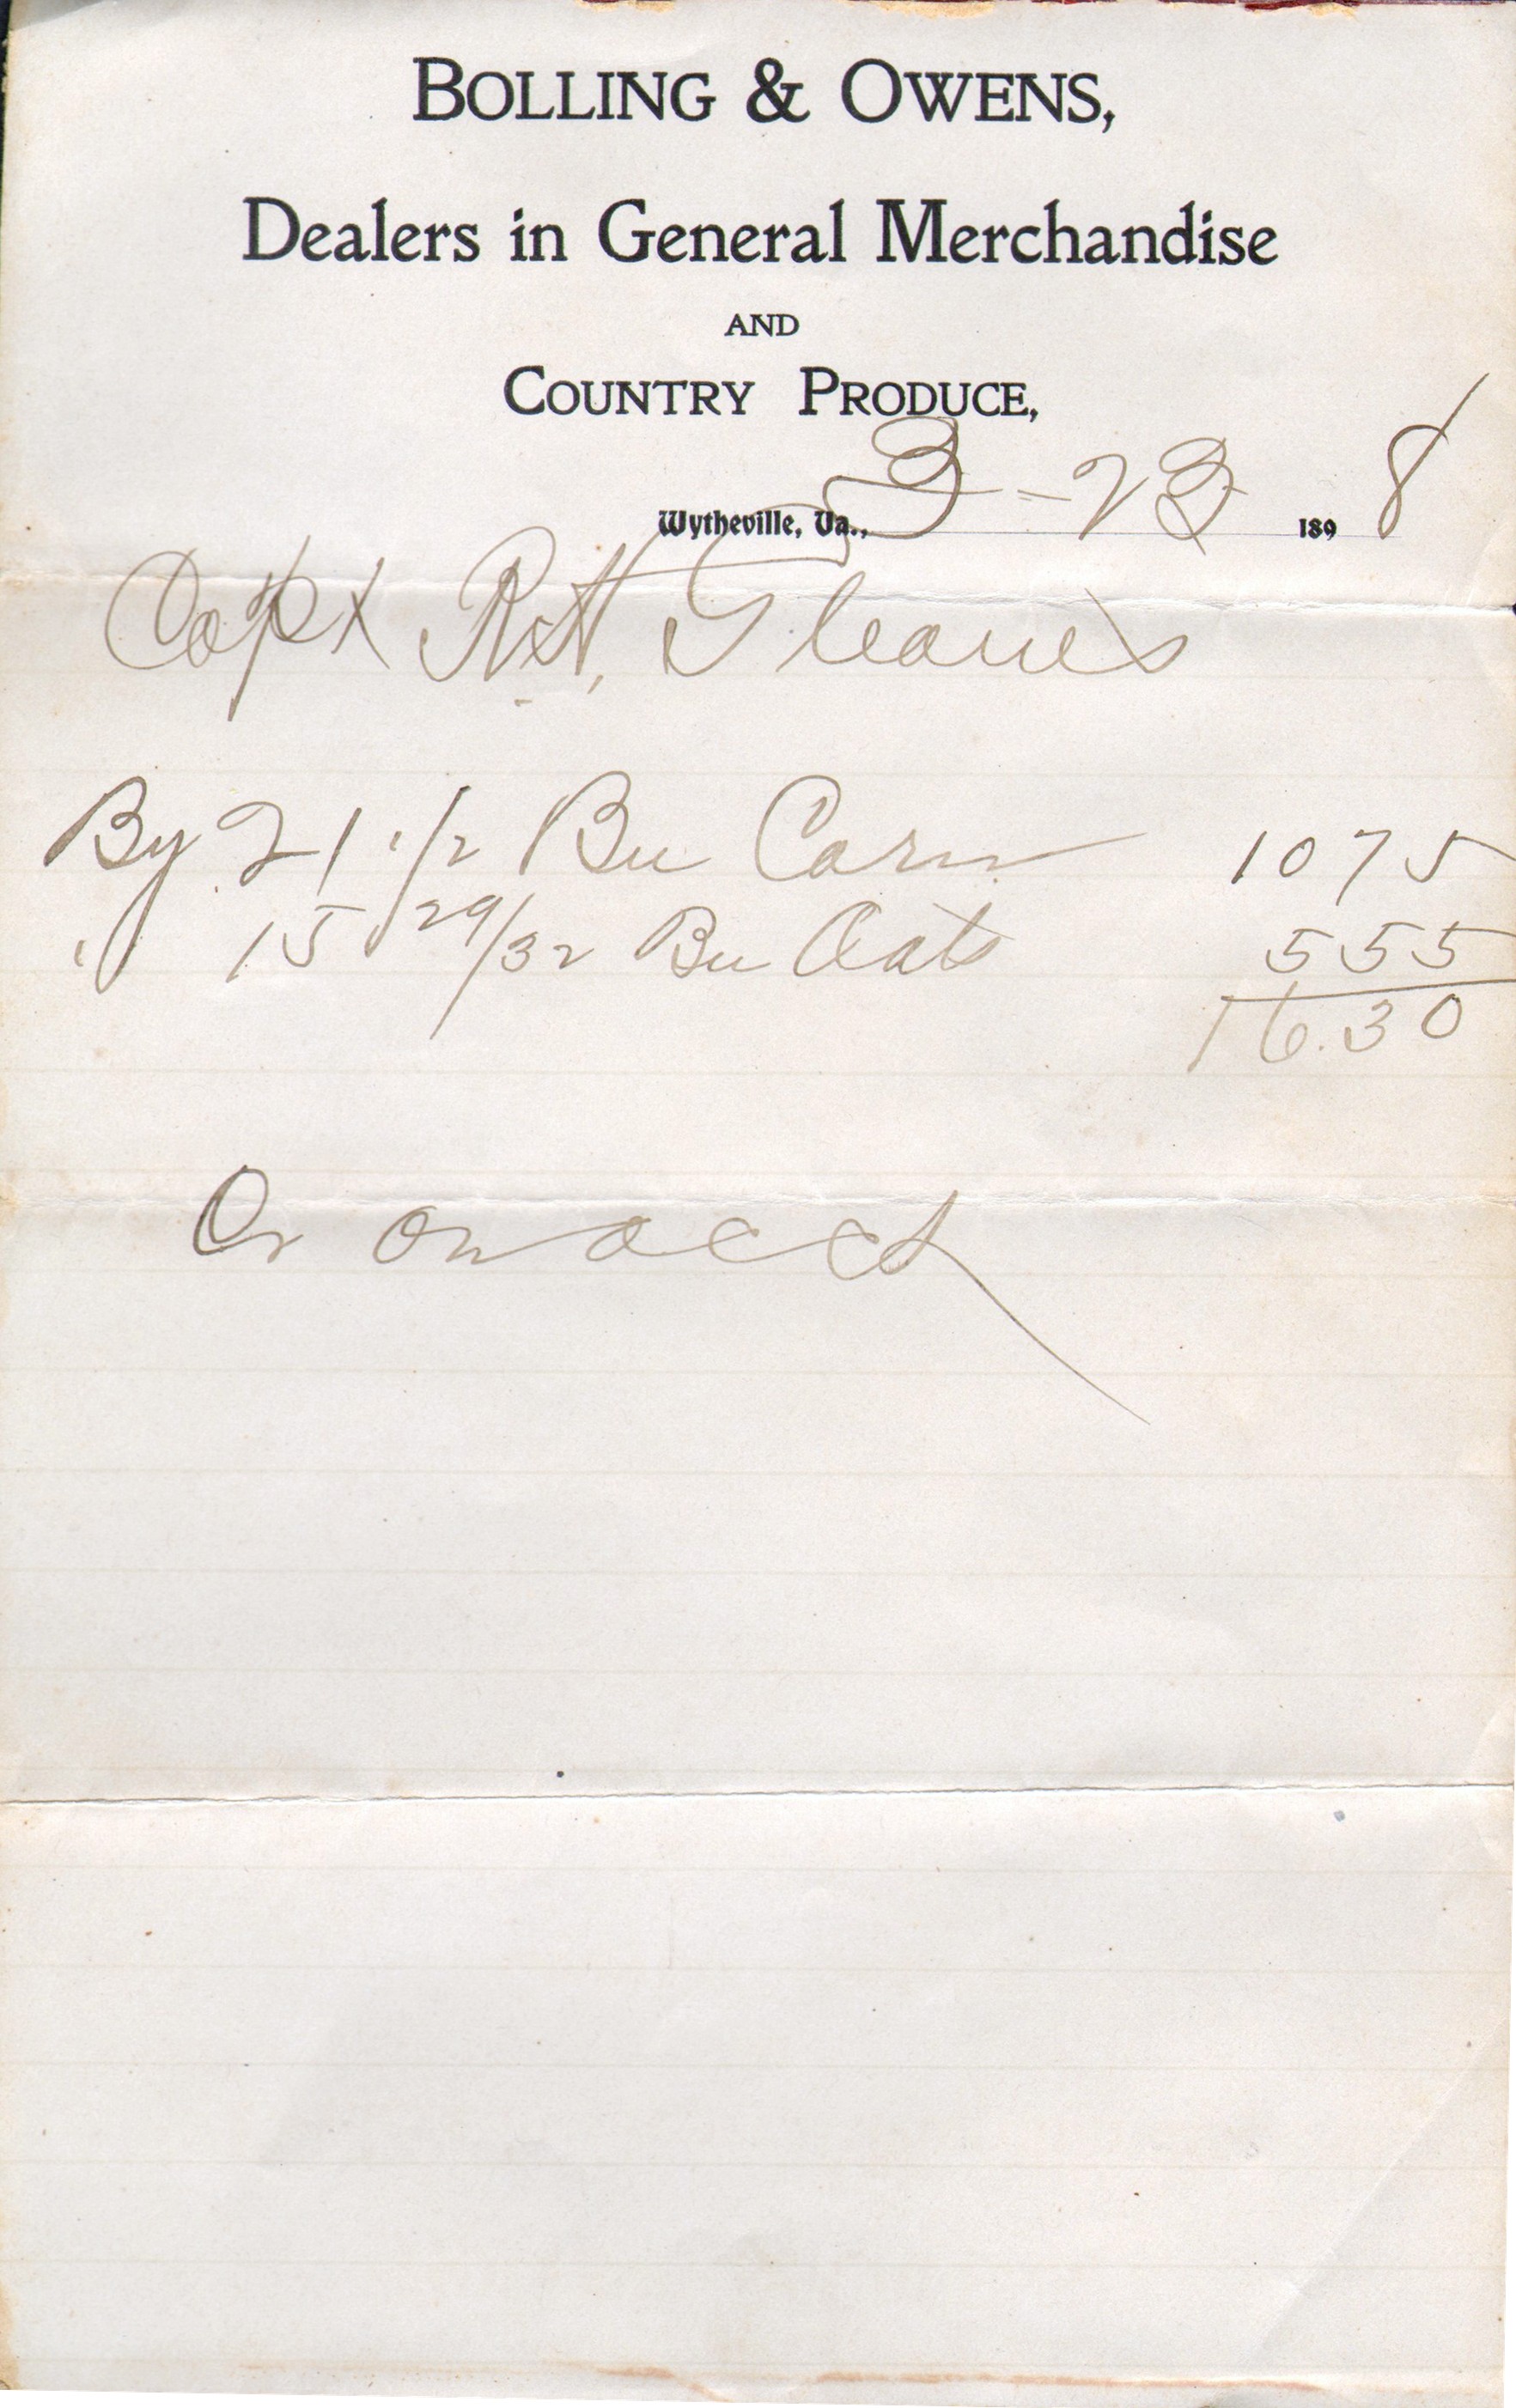 BOLLING & OWENS,
Dealers in General Merchandise
AND
COUNTRY PRODUCE,
Wytheville, Va., 3 - 23 1898
Capt R.H. Gleaves
By 21 1/2 Bu Corn 1075
" 15 29/32 Bu Oats 555
16.30
Cr on acct